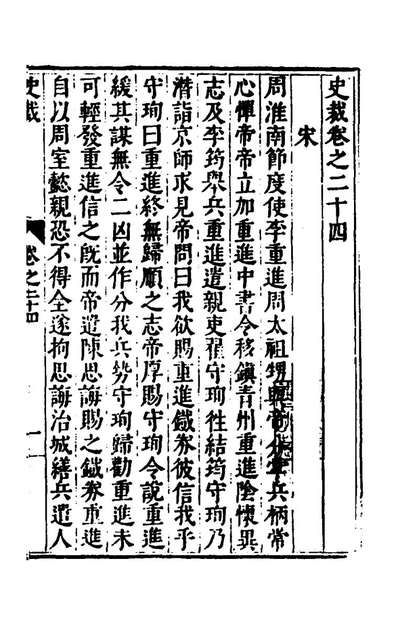 史裁卷之二十四
宋
周淮南節度使李重進周太祖甥與帝分掌兵柄常
心憚帝帝立加重進中書令移鎮青州重進陰懷異
志及李筠舉兵重進遣親吏翟守珣徃結筠守珣乃
潛詣京師求見帝問曰我欲賜重進鐵券彼信我乎
守珣曰重進終無歸順之志帝厚賜守珣令說重進
緩其謀無令二凶並作分我兵勢守珣歸勸重進未
可輕發重進信之旣而帝遣陳思誨賜之鐵券重進
自以周室懿親恐不得全遂拘思誨治城繕兵遣人
史裁
卷之二十四
一